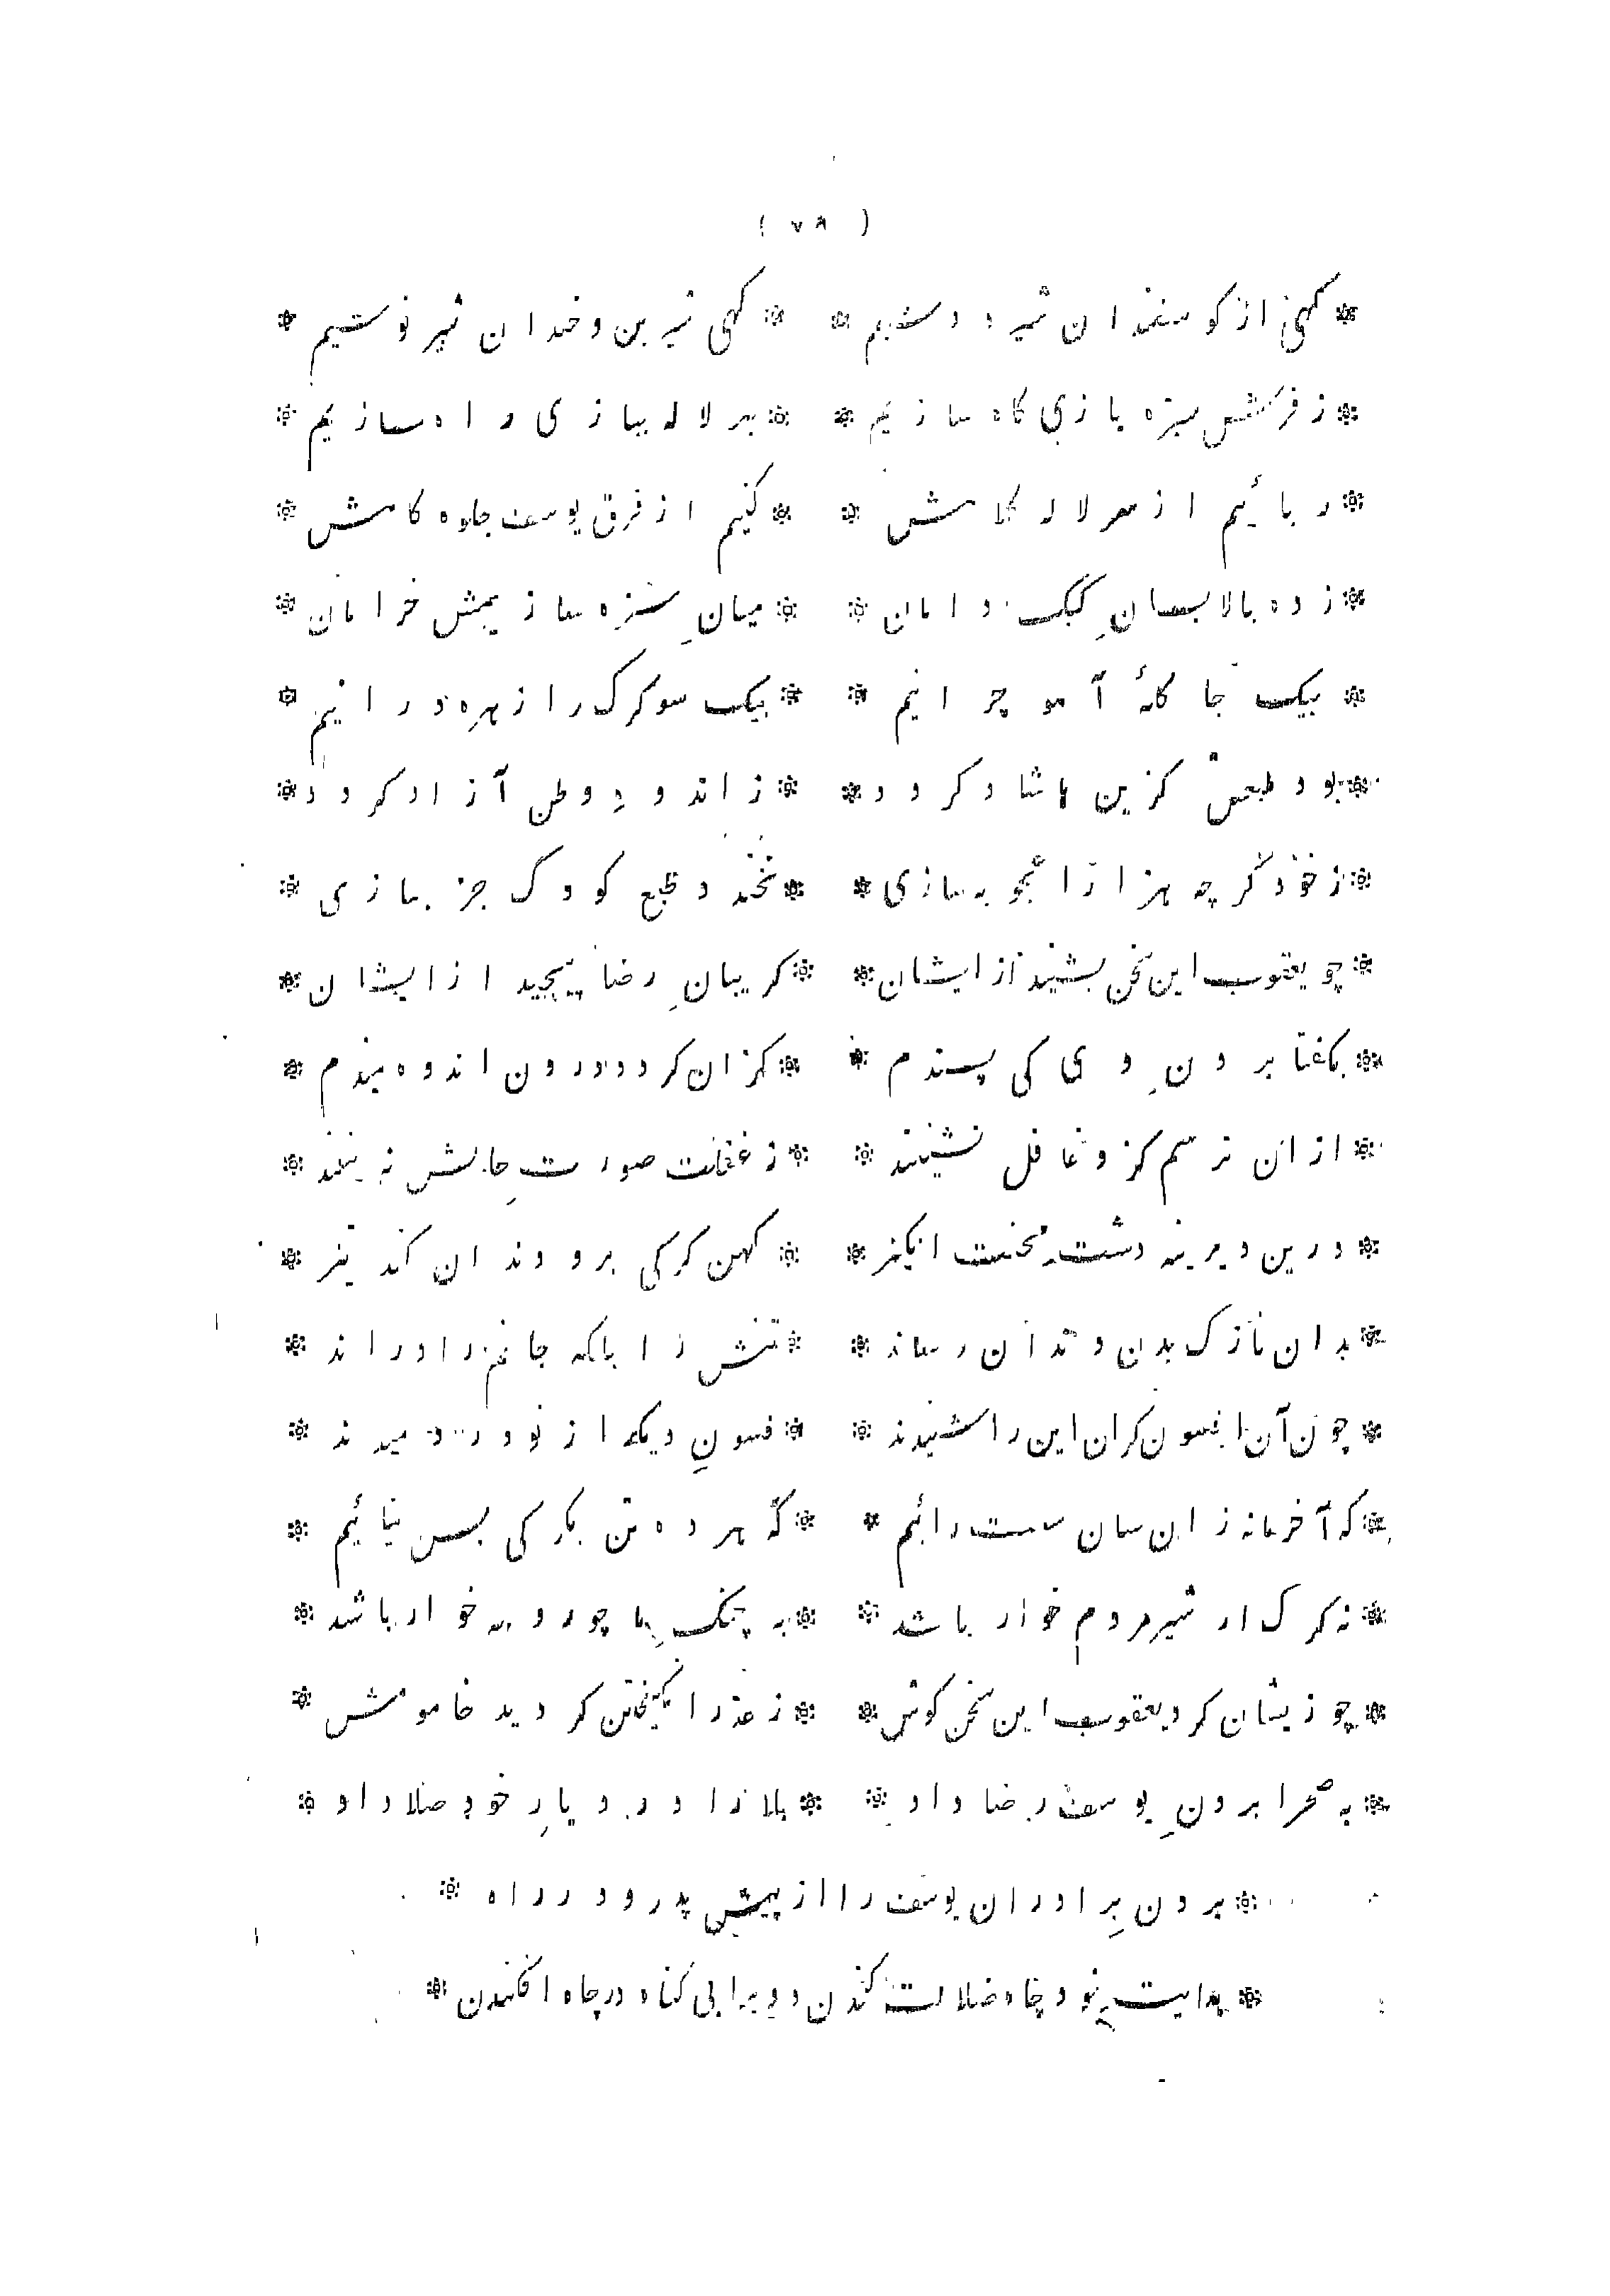 ( ۷۸ )
* کهی از کوسفندان شیر دوشیم * * کهی شیرین و خندان شیر نوشیم *
* ز فرش سبزه بازی کاه سازیم * * بهر لاله ببازی راه سازیم *
* ربائیم از سر لاله کلاهش * * کنیم از فرق یوسف جلوه کاهش *
* زده بالا بسانِ کبک دامان * * میانِ سبزه سازیمش خرامان *
* بیک جا کلهٔ آهو چرانیم * * بیک سو کرک را زهره درانیم *
* بود طبعش کزین ها شاد کردد * * ز اندوهِ وطن آزاد کردد *
* ز خود کر چه هزار اعجوبه سازی * * نخندد طبع کودک جز ببازی *
* چو یعقوب این سخن بشنید از ایشان * * کریبانِ رضا پیچید از ایشان *
* بکفتا بردنِ وی کی پسندم * * کزان کردد درون اندوه مندم *
* ازان ترسم کزو غافل نشینند * * ز غفلت صورتِ حالش نه بینند *
* درین دیرینه دشتِ محنت انکیز * * کهن کرکی برو دندان کند تیز *
* بدان نازک بدن دندان رساند * * تنش را بلکه جانم را دراند *
* چون آن افسون کران این را شنیدند * * فسونِ دیکر از نو در دمیدند *
* که آخر ما نه زان سان سست رائیم * * که هر ده تن بکرکی بس نیائیم *
* نه کرک ار شیر مردم خوار باشد * * به چنکِ ما چو روبه خوار باشد *
* چو زیشان کرد یعقوب این سخن کوش * * ز عذر انکیختن کردید خاموش *
* به صحرا بردنِ یوسف رضا داد * * بلا را در دیارِ خود صلا داد *
* بردنِ برادران یوسف را از پیش پدر و در راه *
* هدایتِ خود چاه ضلالت کندن و ویرا بی کناه در چاه افکندن *